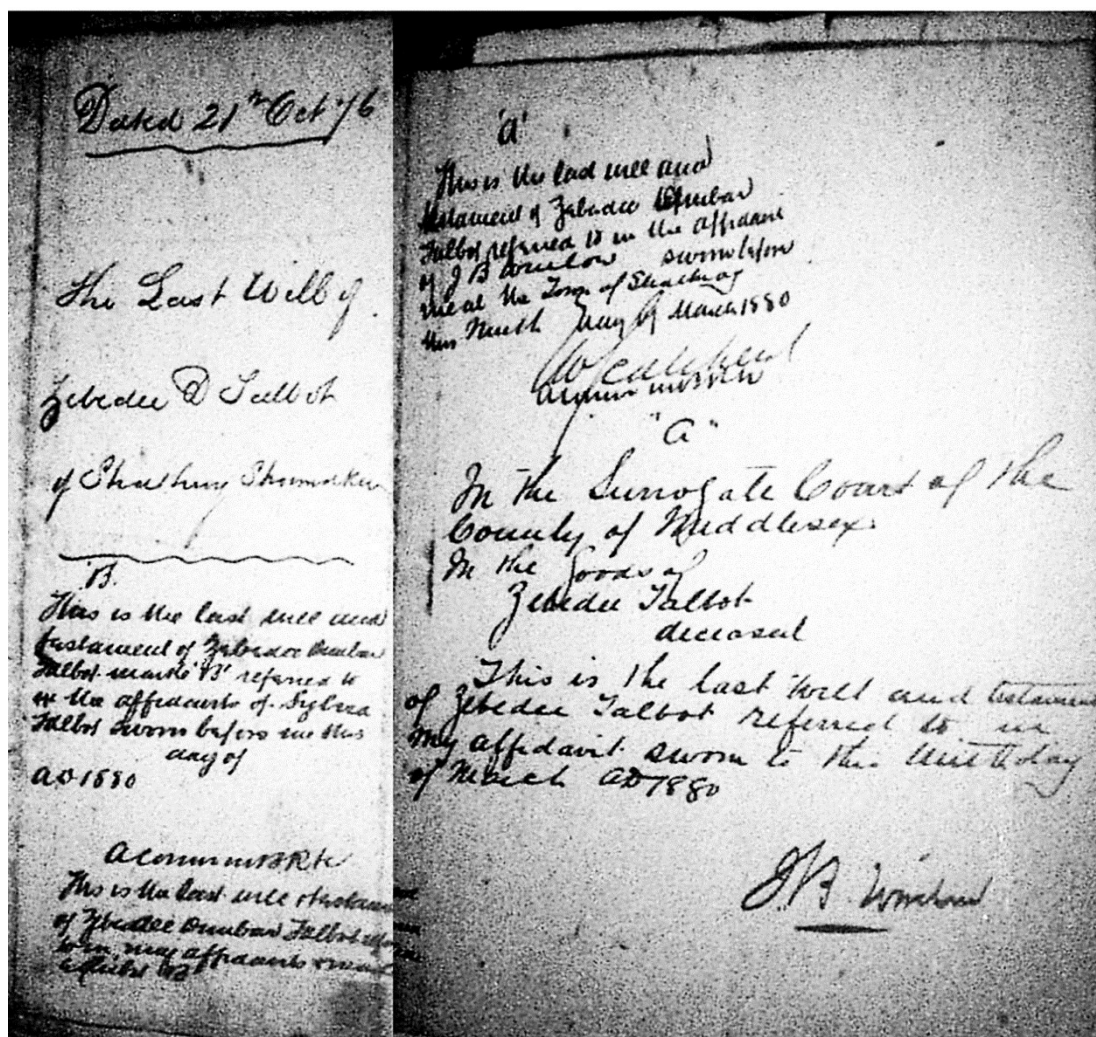 Dated 21st Oct '76
The Last Will of
Zebedee D Talbot
of Strathroy Shoemaker
'B'
This is the last will and
testament of Zebedee Dunbar
Talbot marked 'B' referred to
in the affidavit of Sylvia
Talbot sworn before me this
day of
AD 1880
A Commr in B R &c
This is the last will & testament
of Zebedee Dunbar Talbot
to in my affidavit
'B'
'a'
This is the last will and
testament of Zebedee Dunbar
Talbot referred to in the affidavit
of J B Winlow sworn before
me at the Town of Strathroy
this Ninth day of March 1880
"a"
In the Surrogate Court of the
County of Middlesex
In the Goods of
Zebedee Talbot
deceased
This is the last will and testament
of Zebedee Talbot referred to in
my affidavit sworn to this Ninth day
of March AD 1880
J B